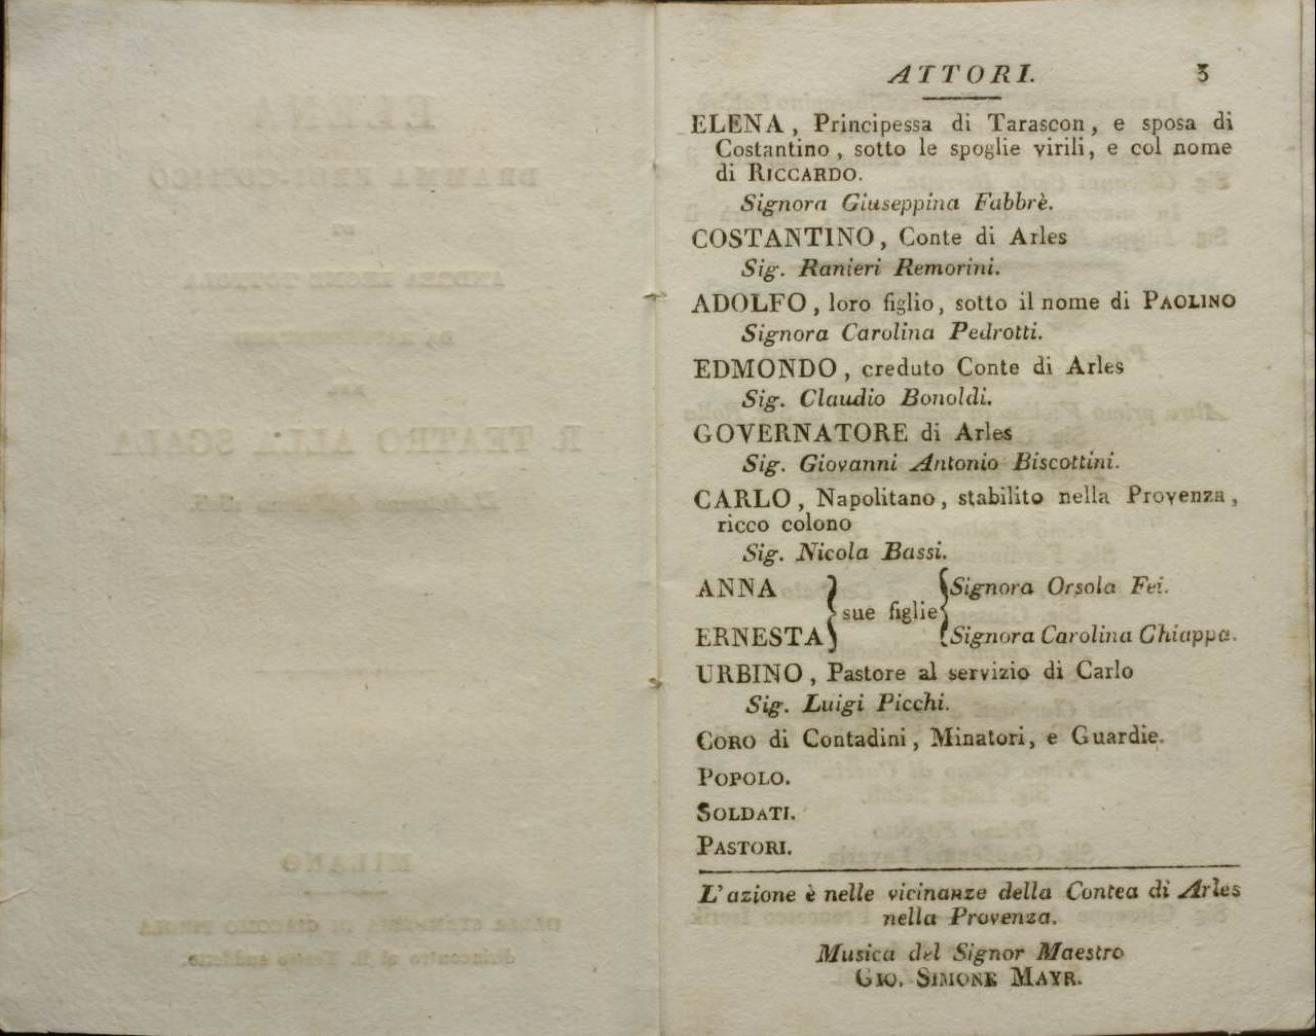 ATTORI. 3
ELENA, Principessa di Tarascon, e sposa di
Costantino, sotto le spoglie virili, e col nome
di RICCARDO.
Signora Giuseppina Fabbrè.
COSTANTINO, Conte di Arles
Sig. Ranieri Remorini.
ADOLFO, loro figlio, sotto il nome di PAOLINO
Signora Carolina Pedrotti.
EDMONDO, creduto Conte di Arles
Sig. Claudio Bonoldi.
GOVERNATORE di Arles
Sig. Giovanni Antonio Biscottini.
CARLO, Napolitano, stabilito nella Provenza,
ricco colono
Sig. Nicola Bassi.
ANNA Signora Orsola Fei.
sue figlie
ERNESTA Signora Carolina Chiappa.
URBINO, Pastore al servizio di Carlo
Sig. Luigi Picchi.
CORO di Contadini, Minatori, e Guardie.
POPOLO.
SOLDATI.
PASTORI.
L'azione è nelle vicinanze della Contea di Arles
nella Provenza.
Musica del Signor Maestro
GIO. SIMONE MAYR.